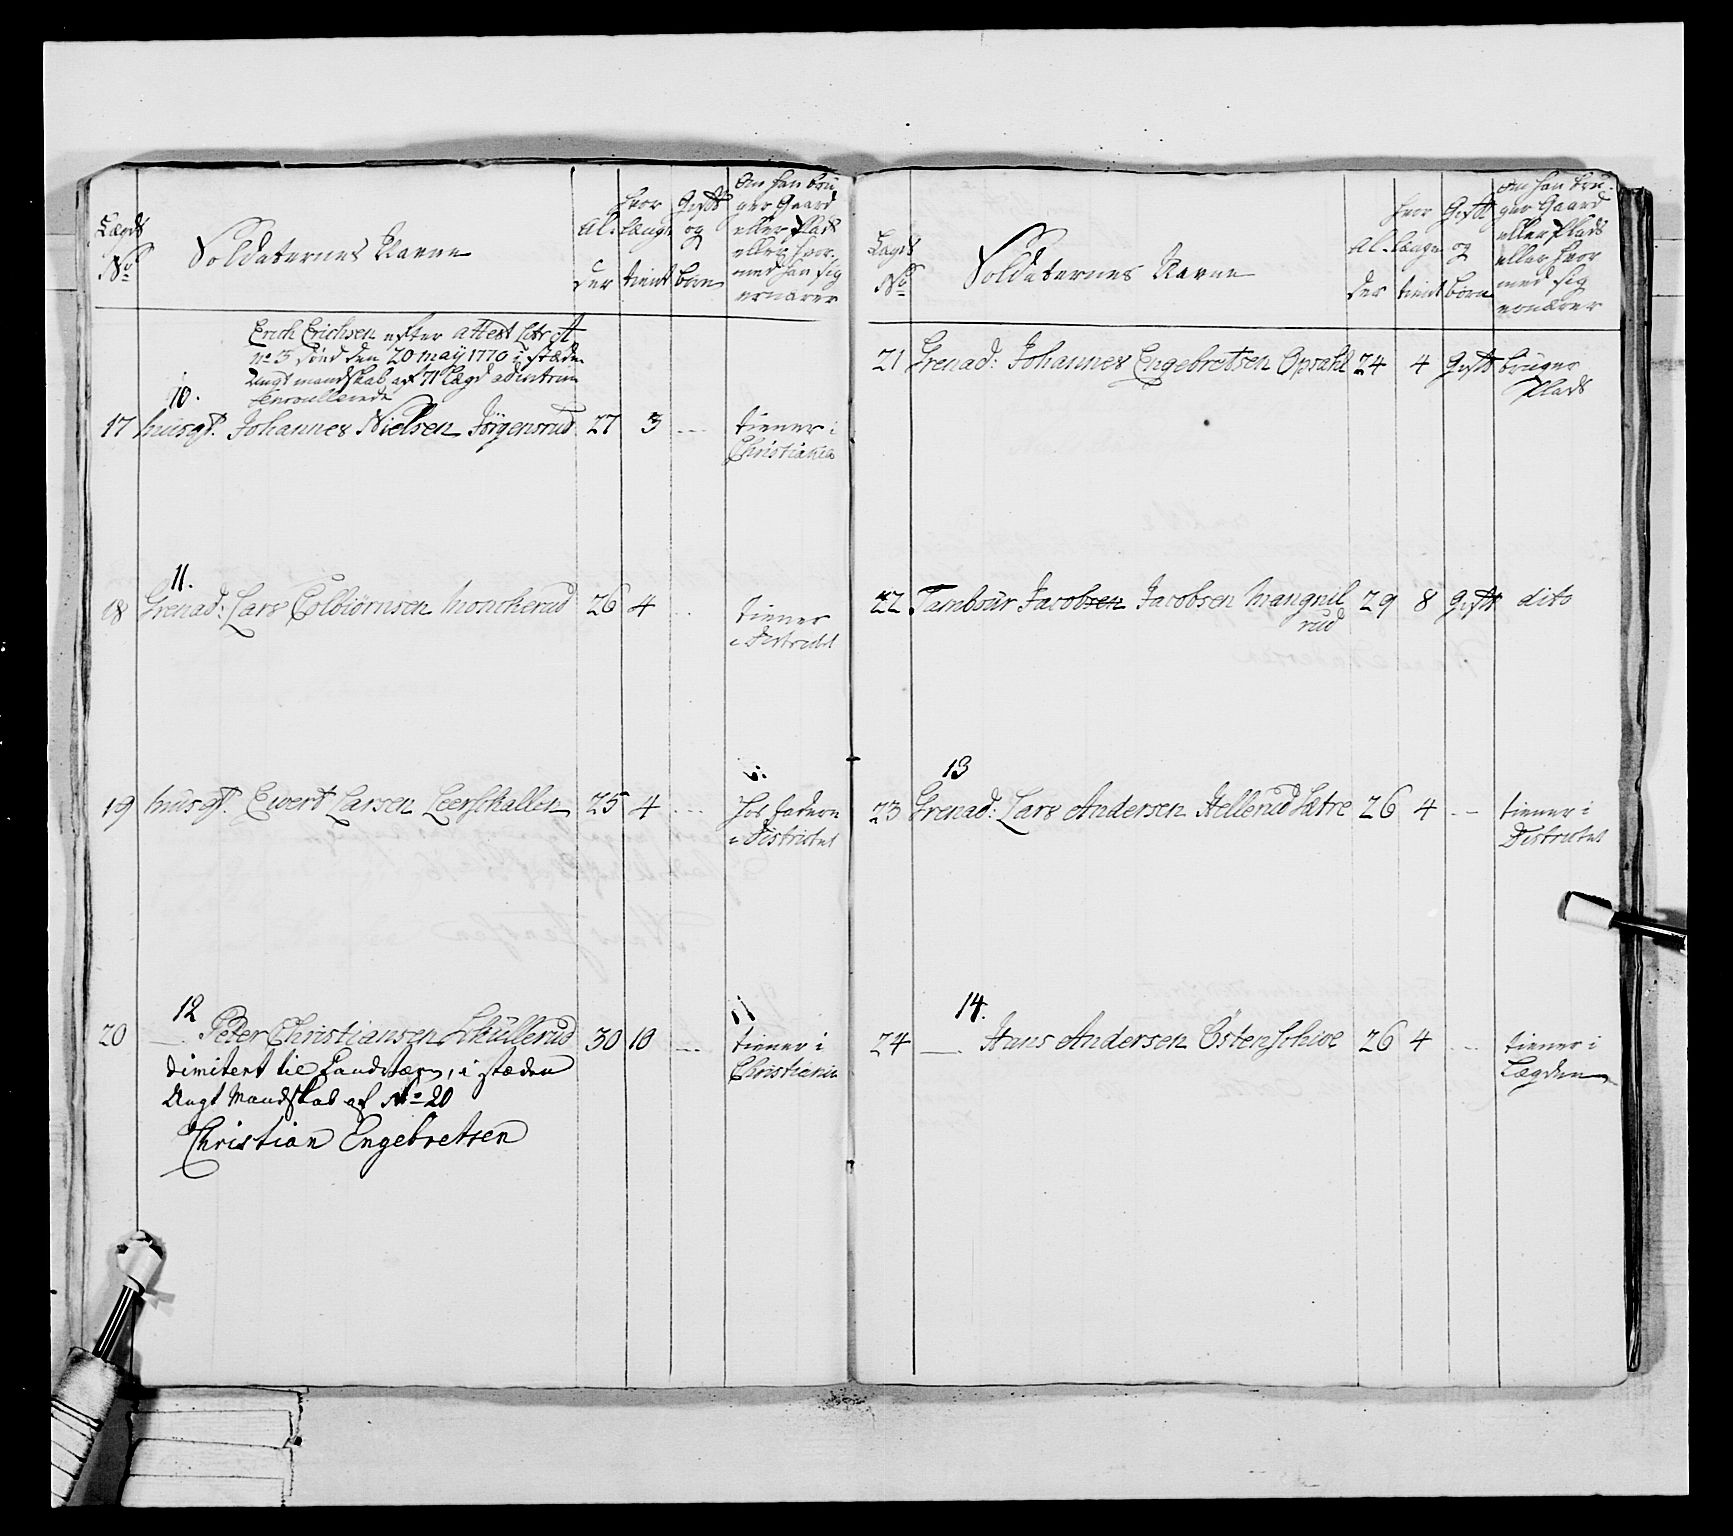 Lægds
No
Soldaternes Navne
Al-
der
hvor
længe
tient
Gift
og
børn
Om han bru
ger Gaard
eller Plads
eller hvor
med han sig
ernærer
Erich Erichsen efter attest Litr A
No 3 død den 20 may 1770 i stæden
Ungt mandskab af 71 Lægd
Enroullerede
10.
17 husgt. Johannes Nielsen Jörgensrud 27 3 --- tiener i
Christiania
11.
18 Grenad: Lars Colbiörnsen Monckerud 26 4 --- tiener
i District
19 husgt. Ewert Larsen Leerskallen 25 4 --- hos Faderen
i Districtet
12
11
20 — Peter Christiansen Schullerud 30 10 --- tiener i
Christiania
dimitert til Landværn, i stæden
Ungt Mandskab af No 20
Christian Engebretsen
Lægds
No
Soldaternes Navne
Al-
der
hvor
længe
tient
Gift
og
børn
Om han bru-
ger Gaard
eller Plads
eller hvor
med sig
ernærer
21 Grenad: Johannes Engebretsen Opsahl 24 4 Gift bruger
Plads
22 Tambour Jacobsen Jacobsen Mangnil
rud 29 8 Gift dito
13
23 Grenad: Lars Andersen Hellerud Sætre 26 4 --- tiener i
Districtet
14.
24 — Hans Andersen Östenschive 26 4 --- tiener i
Lægden